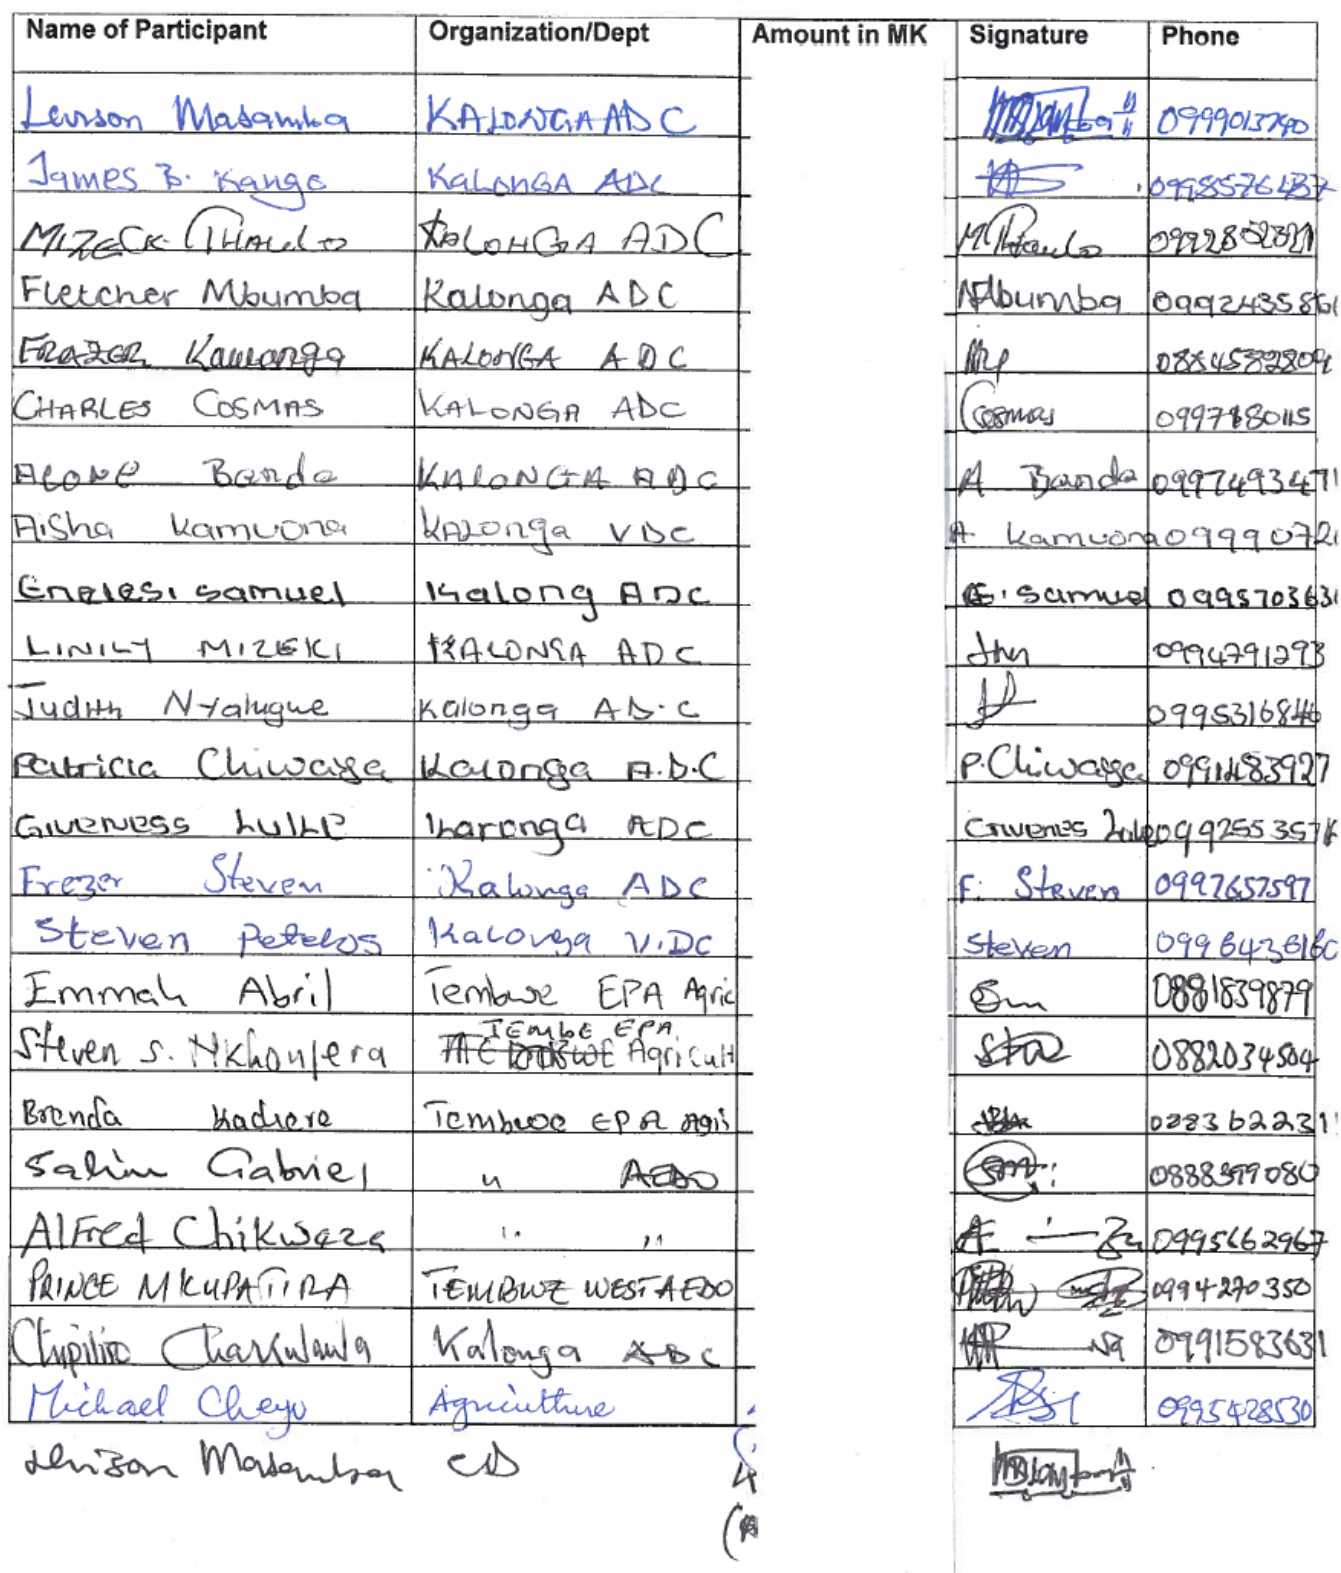 Name of Participant Organization/Dept Amount in MK Signature Phone
Levson Masamba KALONGA ADC 0999013790
James B. Kango KaLonGA ADC 0998576437
MIZECK THAULO KALONGA ADC M Thaulo
Fletcher Mbumba Kalonga ADC Mbumba 0992435861
FRAZER Kawanga KALONGA ADC 0884582809
CHARLES COSMAS KALONGA ADC Cosmas
ALONE Banda KALONGA ADC A Banda 0997493471
AiSha Kamuona KALonga VDC A Kamuona 09990721
Enelesi samuel Kalong ADC E. samuel 0995703631
LINILY MIZEKI KALONGA ADC 0994791293
Judith Nyalugwe Kalonga AD.C 0995316846
Patricia Chiwaya Kalonga A.D.C P.Chiwaya 0991483927
GIVENESS LULLE Karonga ADC Givenes
Frezer Steven Kalonga ADC F. Steven 0997657597
Steven Petelos Kalonga V.DC Steven
Emmah Abril Tembwe EPA Agric 0881839879
Steven S. Nkhonjera TEMBE EPA Agricult 0882034504
Brenda Kadiere Tembwe EPA Agri
Salim Gabriel " AEDO
Alfred Chikwaza " " 0995662967
PRINCE MKUPATIRA TEMBWE WEST AEDO 0994270350
Chipiliro Kalonga ADC 0991583631
Michael Cheyo Agriculture 0995428530
Masamba